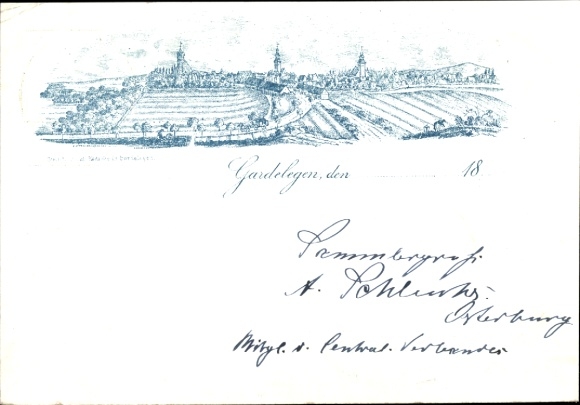 Gardelegen, den 18
Sammlergruß
A. Schlenker.
Osterburg
Mitgl. d. Central. Verbandes